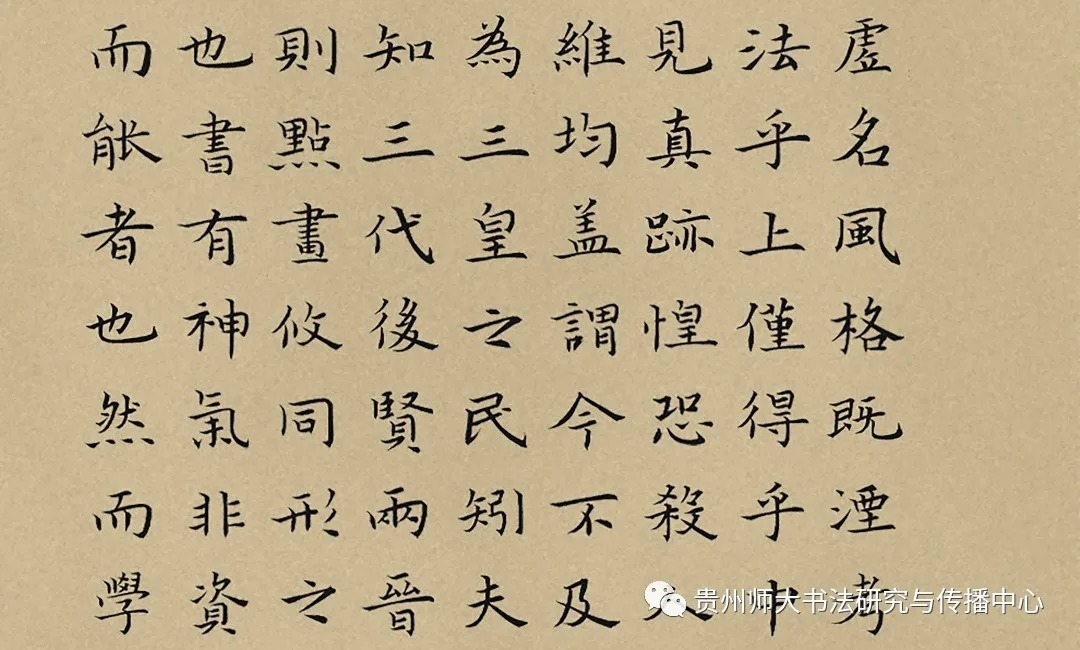 虛名風格既湮
法乎上僅得乎中
見真跡惶恐殺人
維均盖謂今不及
為三皇之民矧夫
知三代後賢兩晉
則點畫攸同形之
也書有神氣非資
而能者也然而學
贵州师大书法研究与传播中心